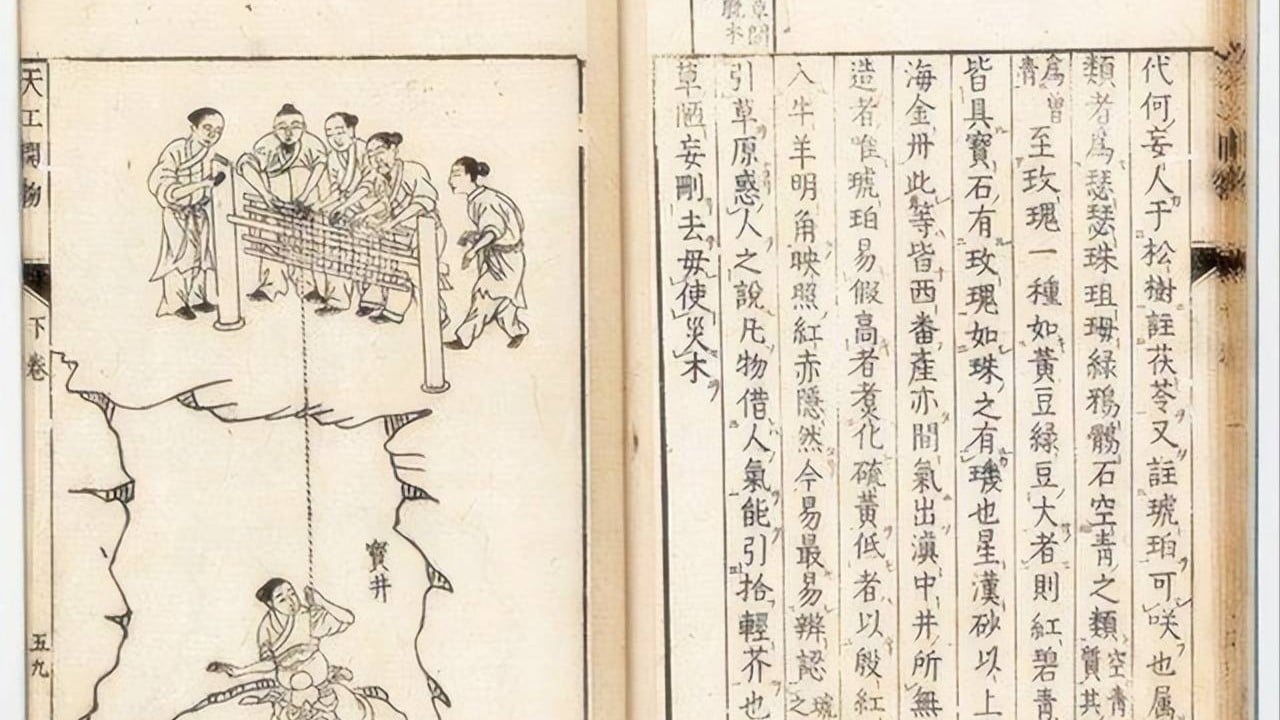 代何妄人于松樹註茯苓又註琥珀可咲也属
類者為瑟瑟珠珇珻綠鴉鶻石空青之類空青質其
為曾青至玫瑰一種如黃豆綠豆大者則紅碧青
皆具寶石有玫瑰如珠之有璣也星漢砂以上
海金丹此等皆西番產亦間氣出滇中井所無
造者唯琥珀易假高者煮化硫黃低者以殷紅
入牛羊明角映照紅赤隱然今易最易辨認琥之
引草原惑人之說凡物借人氣能引拾輕芥也
草陋妄刪去毋使災木
寶井
天工開物 下卷 五九